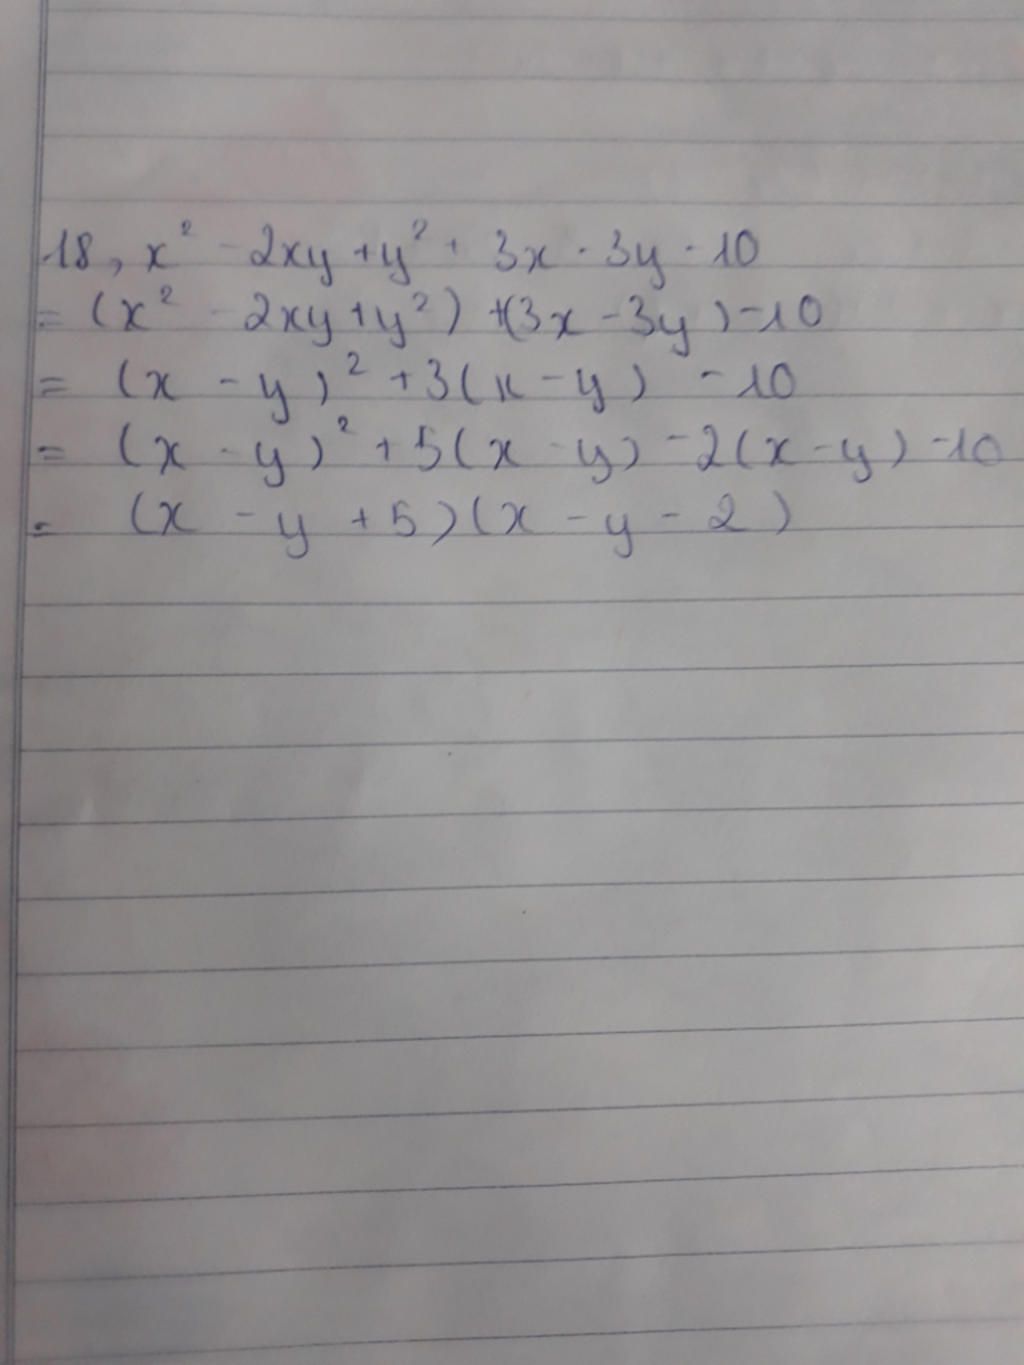 18, x² - 2xy + y² + 3x - 3y - 10
= (x² - 2xy + y²) + (3x - 3y) - 10
= (x - y)² + 3(x - y) - 10
= (x - y)² + 5(x - y) - 2(x - y) - 10
= (x - y + 5)(x - y - 2)